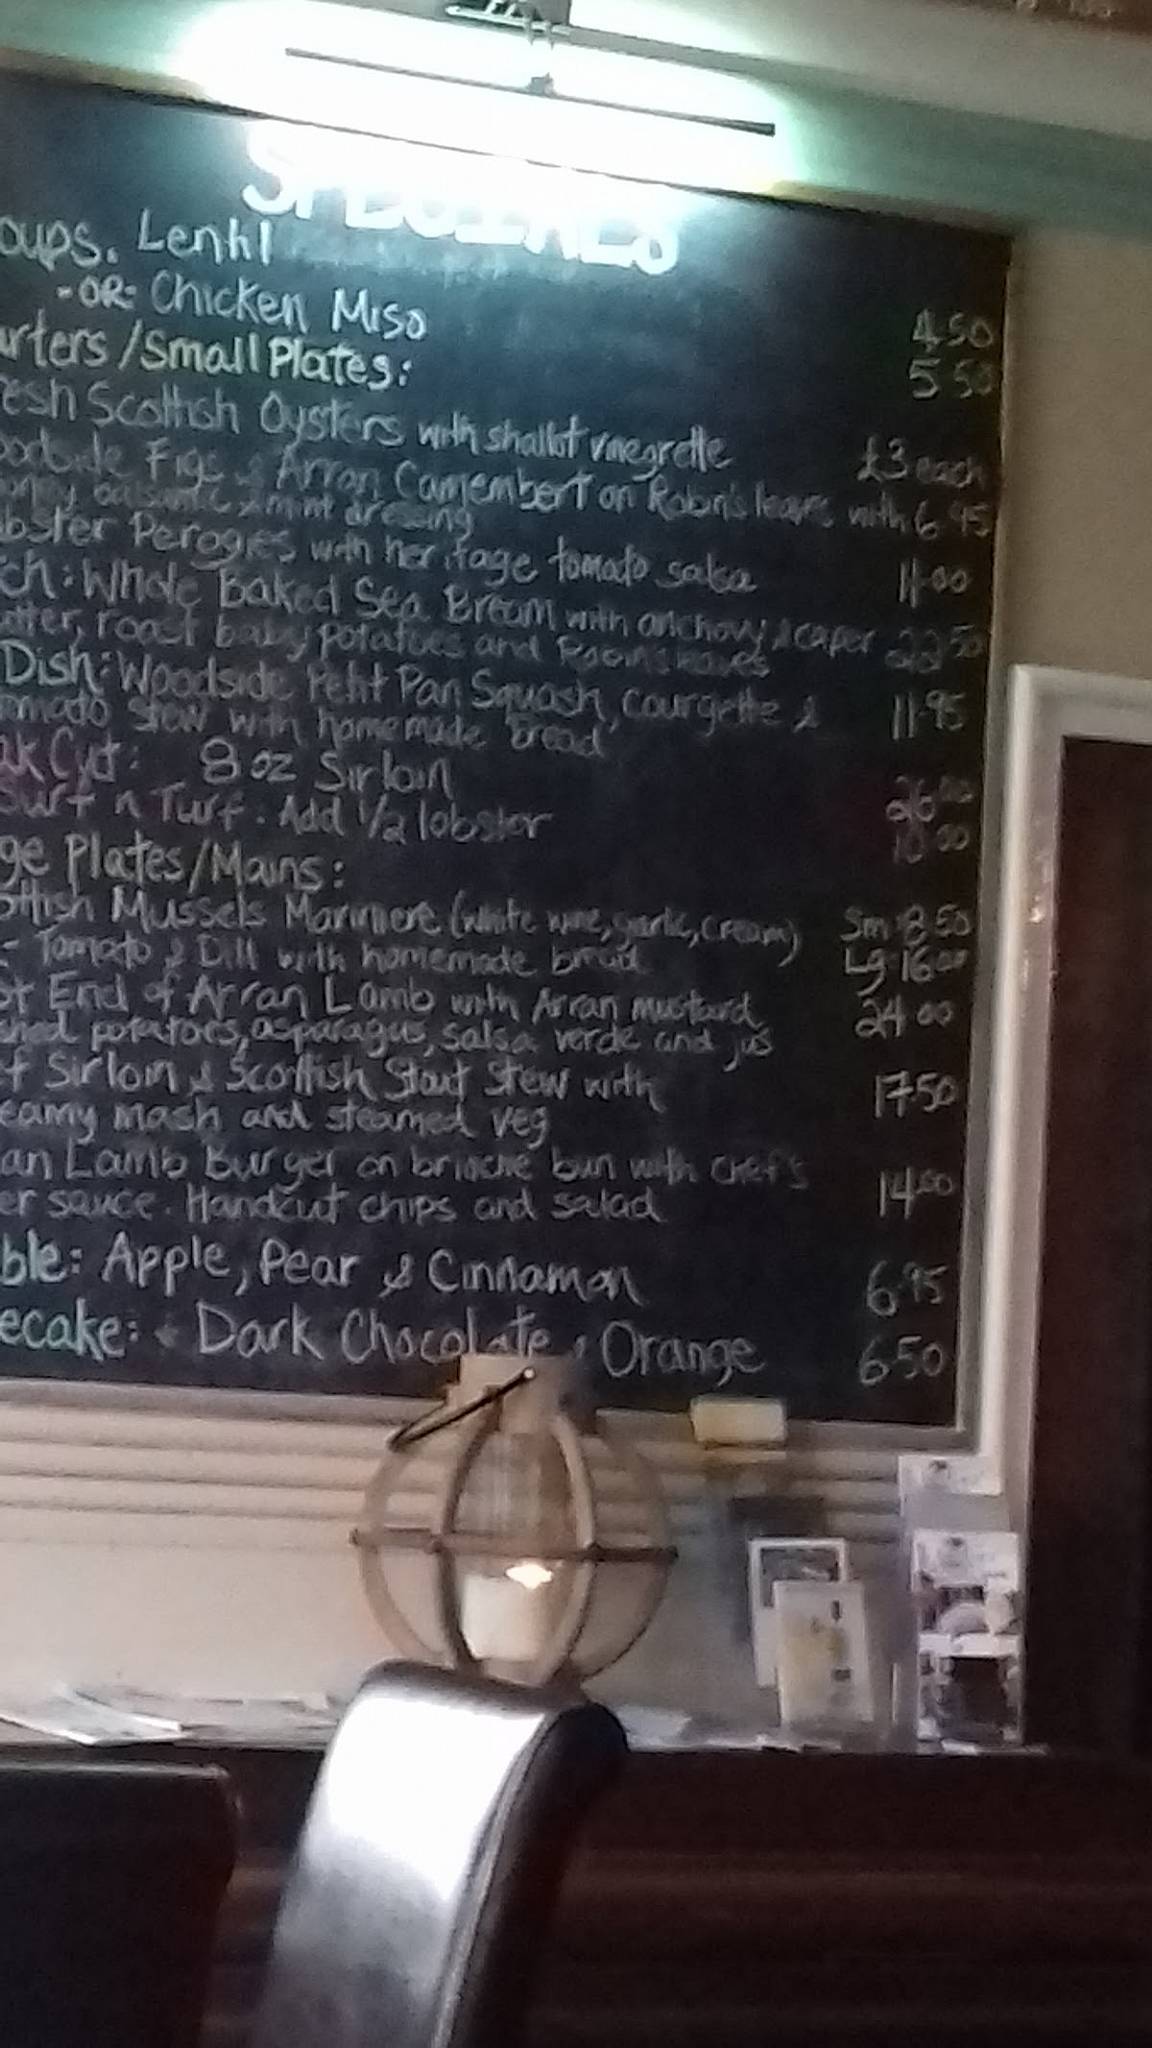 SPECIALS
oups. Lentil
-OR- Chicken Miso 4.50
arters / Small Plates: 5.50
resh Scottish Oysters with shallot vinegrette £3 each
oodside Figs & Arran Camembert on Robin's leaves with 6.95
oney balsamic & mint dressing
obster Perogies with heritage tomato salsa 11.00
tch: Whole Baked Sea Bream with anchovy & caper 22.50
utter, roast baby potatoes and Robin's leaves
Dish: Woodside Petit Pan Squash, courgette & 11.95
omato stew with homemade bread
ak Cut: 8 oz Sirloin 26.00
Surf n Turf. Add 1/2 lobster 10.00
ge Plates / Mains:
ottish Mussels Mariniere (white wine, garlic, cream) Sm 8.50
- Tomato & Dill with homemade bread Lg 16.00
st End of Arran Lamb with Arran mustard 24.00
shed potatoes, asparagus, salsa verde and jus
ef Sirloin & Scottish Stout Stew with 17.50
eamy mash and steamed veg
an Lamb Burger on brioche bun with chef's 14.00
er sauce. Handcut chips and salad
ble: Apple, Pear & Cinnamon 6.95
ecake: Dark Chocolate & Orange 6.50